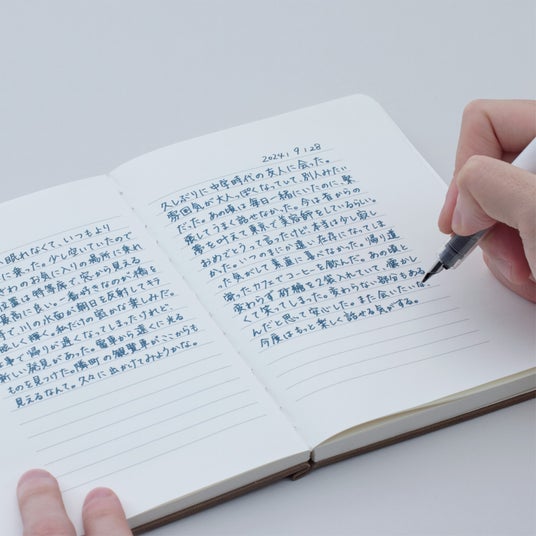 に眠れなくて、いつもより
に乗った。少し空いていたので
のお気に入りの場所に乗れ
特等席で、窓から見える
最高に良い。一番好きなのが橋を
川の水面が朝日を反射してキラ
眩しく輝く、私だけの密かな楽しみだ。
事で帰りが遅くなってしまったけれど、
新しい発見があった。電車から遠くに光る
ものを見つけた。隣町の観覧車がここからも
見えるなんて。久々に出かけてみようかな。
2024.9.28
久しぶりに中学時代の友人に会った。
雰囲気が大人っぽくなっていて、別人みたい
だった。あの頃は毎日一緒にいたのに、緊
張してうまく話せなかった。今は昔からの
夢を叶えて東京で美容師をしているらしい。
おめでとうって言ったけど、本当は少し寂し
かった。いつのまにか遠い存在になってしま
った気がして素直に喜べなかった。帰り道
寄ったカフェでコーヒーを飲んだ。あの頃と
変わらず砂糖を2袋入れていて、懐かし
くて笑ってしまった。変わらない部分もある
んだと思って安心した。また会いたいな
今度はもっと楽しく話せる気がする。